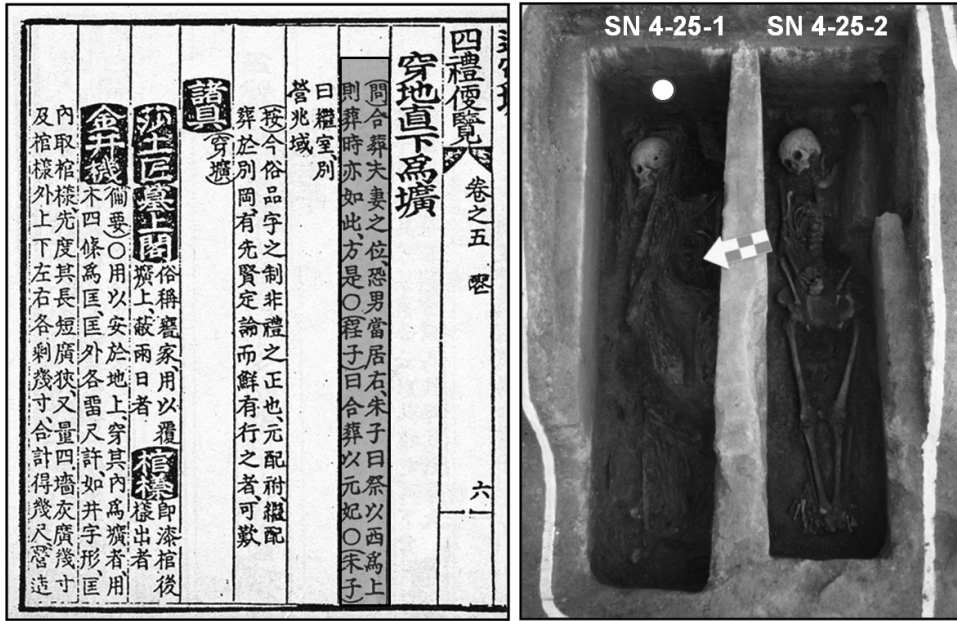 四禮便覽 卷之五 喪 六
穿地直下爲壙
問合葬夫妻之位恐男當居右朱子曰祭以西爲上
則葬時亦如此方是○程子曰合葬以元妃○朱子
曰繼室別
營兆域
按今俗品字之制非禮之正也元配祔繼配
葬於別岡有先賢定論而鮮有行之者可歎
諸具 穿壙
莎土匠 墓上閣 俗稱甕家用以覆
壙上蔽雨日者 棺㨾 卽漆棺後
㨾出者
金井機 備要○用以安於地上穿其內爲壙者用
木四條爲匡匡外各留尺許如井字形匡
內取棺㨾先度其長短廣狹又量四墻灰廣幾寸
及棺㨾外上下左右各剩幾寸合計得幾尺營造
SN 4-25-1
SN 4-25-2